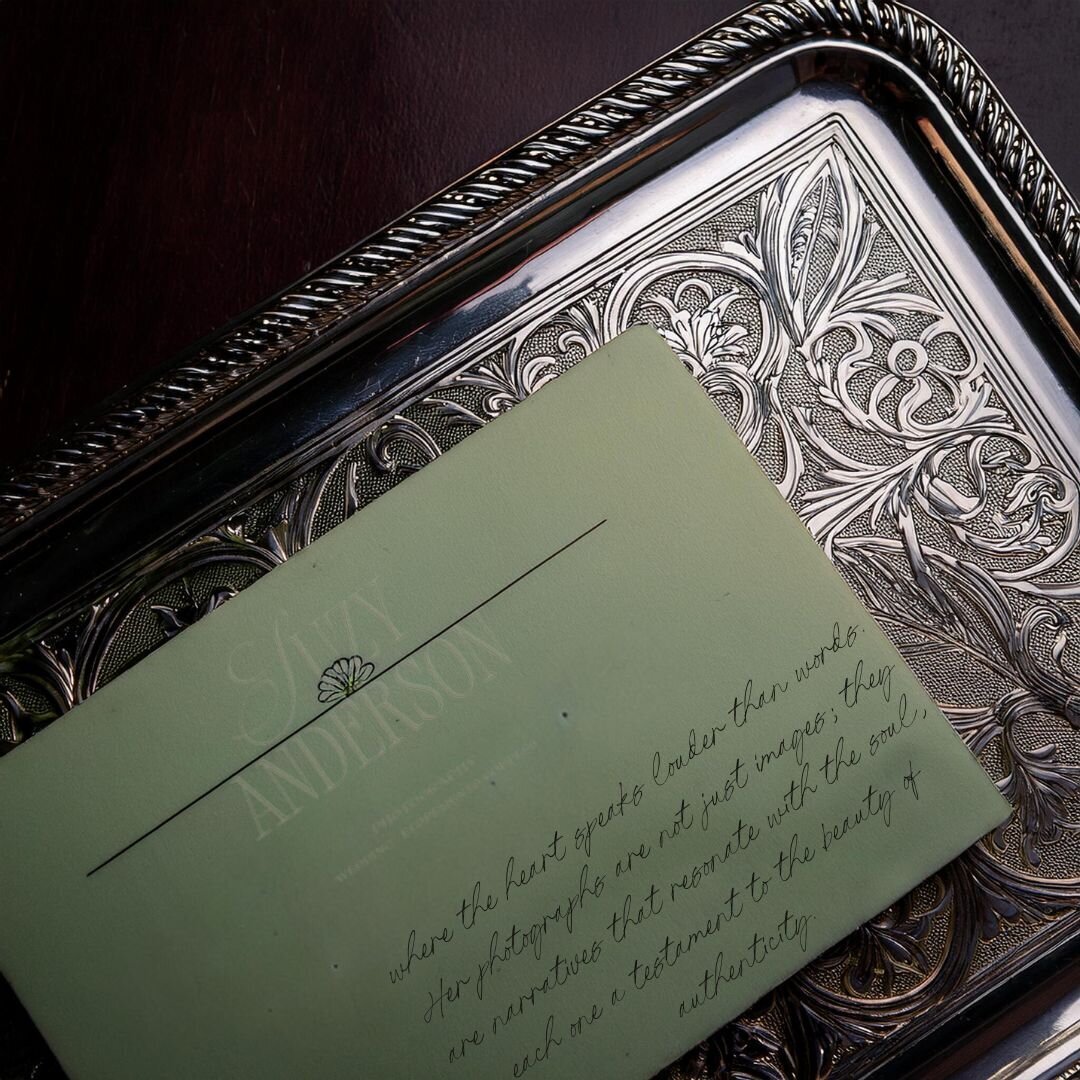 SUZY
ANDERSON
where the heart speaks louder than words.
Her photographs are not just images; they
are narratives that resonate with the soul,
each one a testament to the beauty of
authenticity.